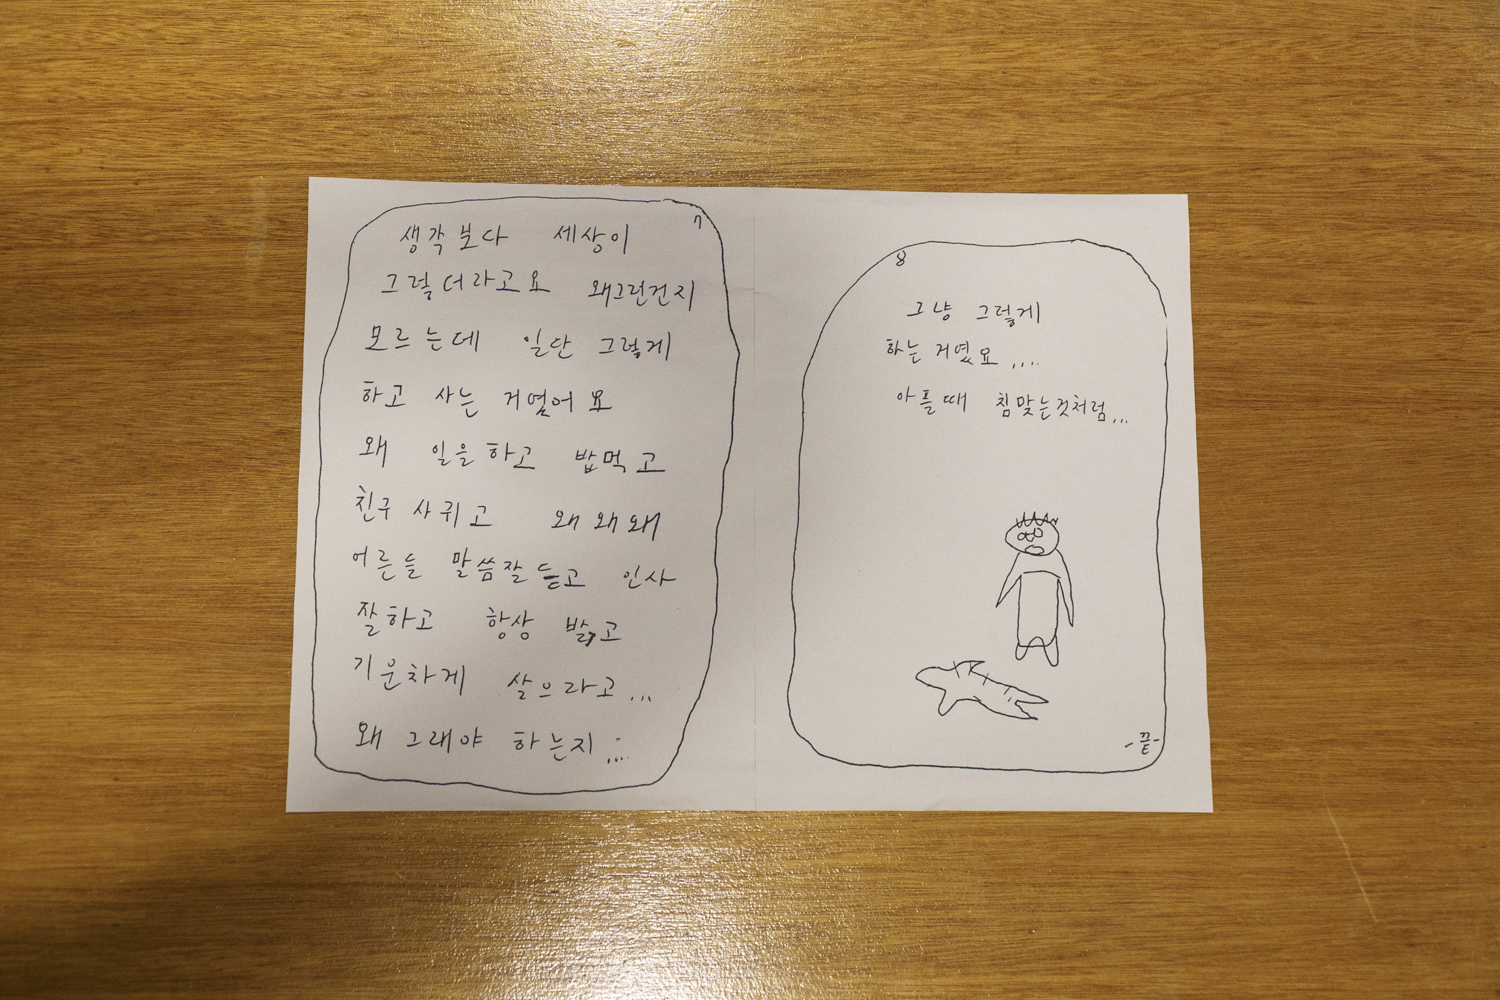 7
생각보다 세상이
그렇더라고요 왜그런건지
모르는데 일단 그렇게
하고 사는 거였어요
왜 일을하고 밥먹고
친구 사귀고 왜 왜 왜
어른들 말씀잘 듣고 인사
잘하고 항상 밝고
기운차게 살으라고...
왜 그래야 하는지....
8
그냥 그렇게
하는 거였요....
아플때 침맞는것처럼...
-끝-